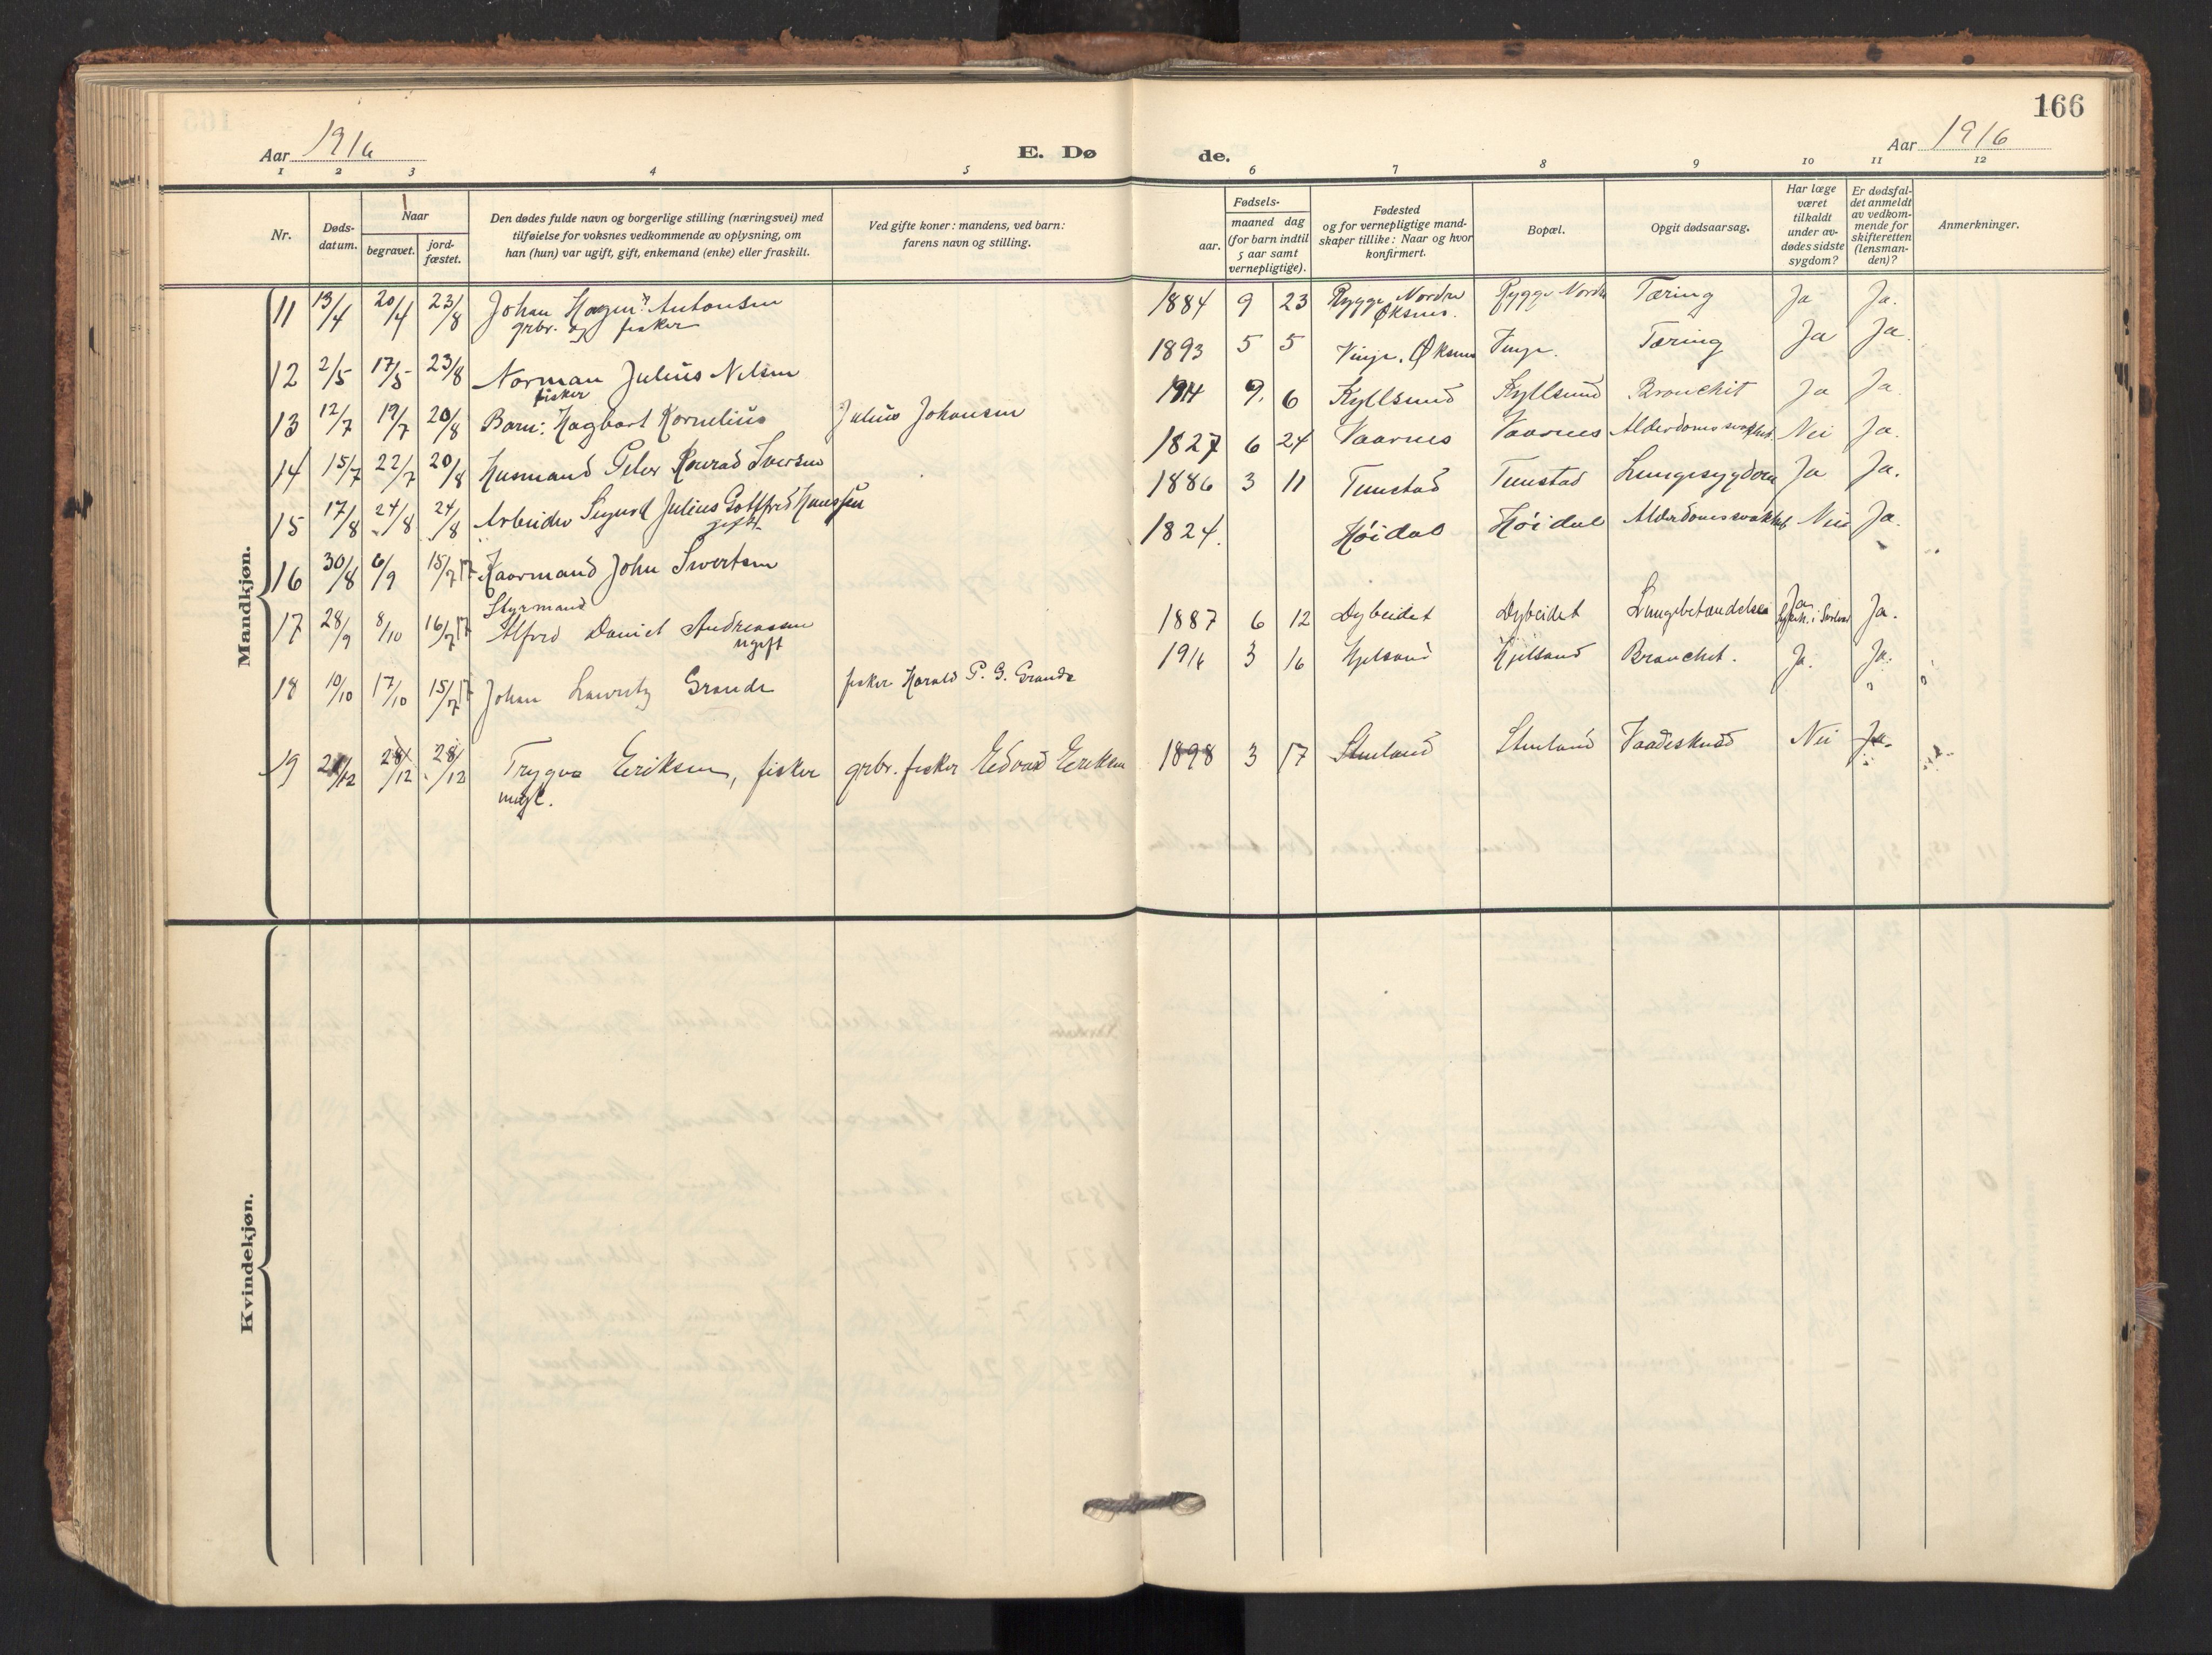 166
Aar 1916
E. Døde.
Aar 1916
1 2 3 4 5 6 7 8 9 10 11 12
Nr.
Døds-
datum.
Naar
begravet.
jord-
fæstet.
Den dødes fulde navn og borgerlige stilling (næringsvei) med
tilføielse for voksnes vedkommende av oplysning, om
han (hun) var ugift, gift, enkemand (enke) eller fraskilt.
Ved gifte koner: mandens, ved barn:
farens navn og stilling.
Fødsels-
aar.
maaned dag
(for barn indtil
5 aar samt
vernepligtige).
Fødested
og for vernepligtige mand-
skaper tillike: Naar og hvor
konfirmert.
Bopæl.
Opgit dødsaarsag.
Har læge
været
tilkaldt
under av-
dødes sidste
sygdom?
Er dødsfal-
det anmeldt
av vedkom-
mende for
skifteretten
(lensman-
den)?
Anmerkninger.
Mandkjøn.
11 13/4 20/4 23/8 Johan Antonsen 1884 9 23 Rygge Nordre Rygge Nordre Tæring Ja Ja.
grbr. og fisker Øksnes.
12 2/5 17/5 23/8 Norman Julius Nilsen 1893 5 5 Vinje. Øksnes Vinje. Tæring Ja Ja.
fisker
13 12/7 19/7 20/8 Barn: Hagbart Kornelius Julius Johansen 1914 9. 6 Kyllsund Kyllsund Bronchit Ja Ja.
14 15/7 22/7 20/8 Husmand Peder Konrad Iversen 1827 6 24 Vaarnes Vaarnes Alderdomssvakhet. Nei Ja.
15 17/8 24/8 24/8 Arbeider Sigurd Julius Gottfred Hanssen 1886 3 11 Tunstad Tunstad Lungesygdom Ja Ja.
gift
16 30/8 6/9 15/7 17 Kaarmand John Sivertsen 1824. Høidal Høidal Alderdomssvakhet Nei Ja.
Styrmand
17 28/9 8/10 16/7 17 Alfred Daniel Andreassen 1887 6 12 Dybeidet Dybeidet Lungebetændelse Ja Ja.
ugift
18 10/10 17/10 15/7 17 Johan Lauritz Grande fisker Harald P. G. Grande 1916 3 16 Kjelsand Kjelsand Bronchit. Ja. Ja.
19 21/12 28/12 28/12 Trygve Eriksen, fisker grbr. fisker Edvard Eriksen 1898 3 17 Stenland Stenland Vaadeskudd Nei Ja.
ungk.
Kvindekjøn.